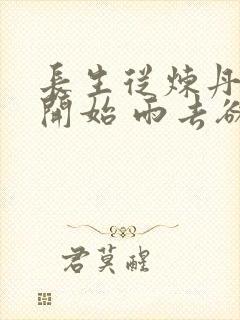 長生從煉丹
開始 雨去欲
君莫醒